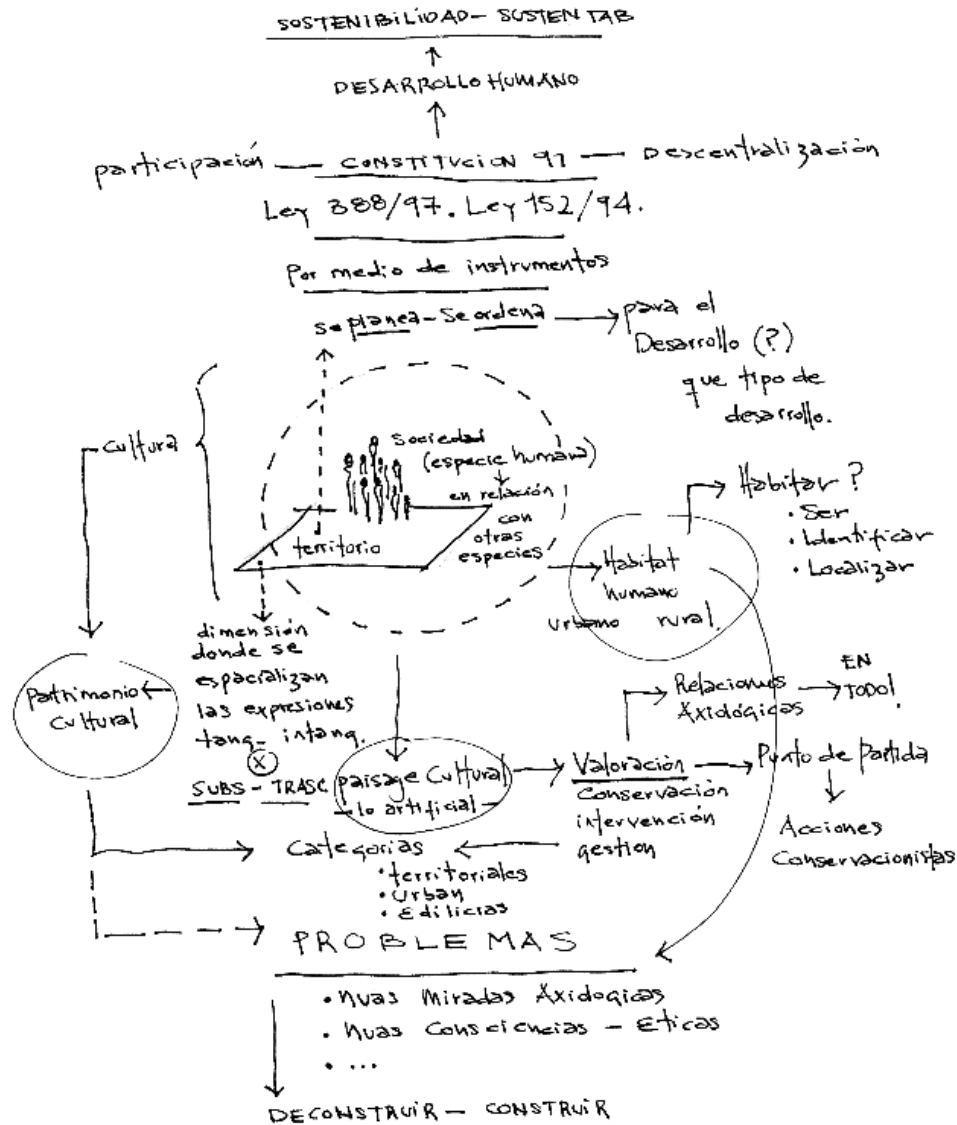 SOSTENIBILIDAD - SUSTENTAB
DESARROLLO HUMANO
participación — CONSTITUCION 91 — Descentralización
Ley 388/97. Ley 152/94.
Por medio de instrumentos
se planea - Se ordena
para el
Desarrollo (?)
que tipo de
desarrollo.
Cultura
Sociedad
(especie humana)
en relación
con
otras
especies
territorio
Habitar ?
• Ser
• Identificar
• Localizar
Habitat
humano
urbano rural.
dimensión
donde se
espacializan
las expresiones
tang- intang.
X
SUBS - TRASC
Patrimonio
Cultural
paisage Cultural
- lo artificial -
Valoración
Conservación
intervención
gestion
Relaciones
Axidógicas
EN
TODO!
Punto de partida
Acciones
Conservacionistas
Categorías
• territoriales
• Urban
• Edilicias
PROBLEMAS
• Nuas Miradas Axidogicas
• Nuas Consciencias - Eticas
• ...
DECONSTRUIR - CONSTRUIR